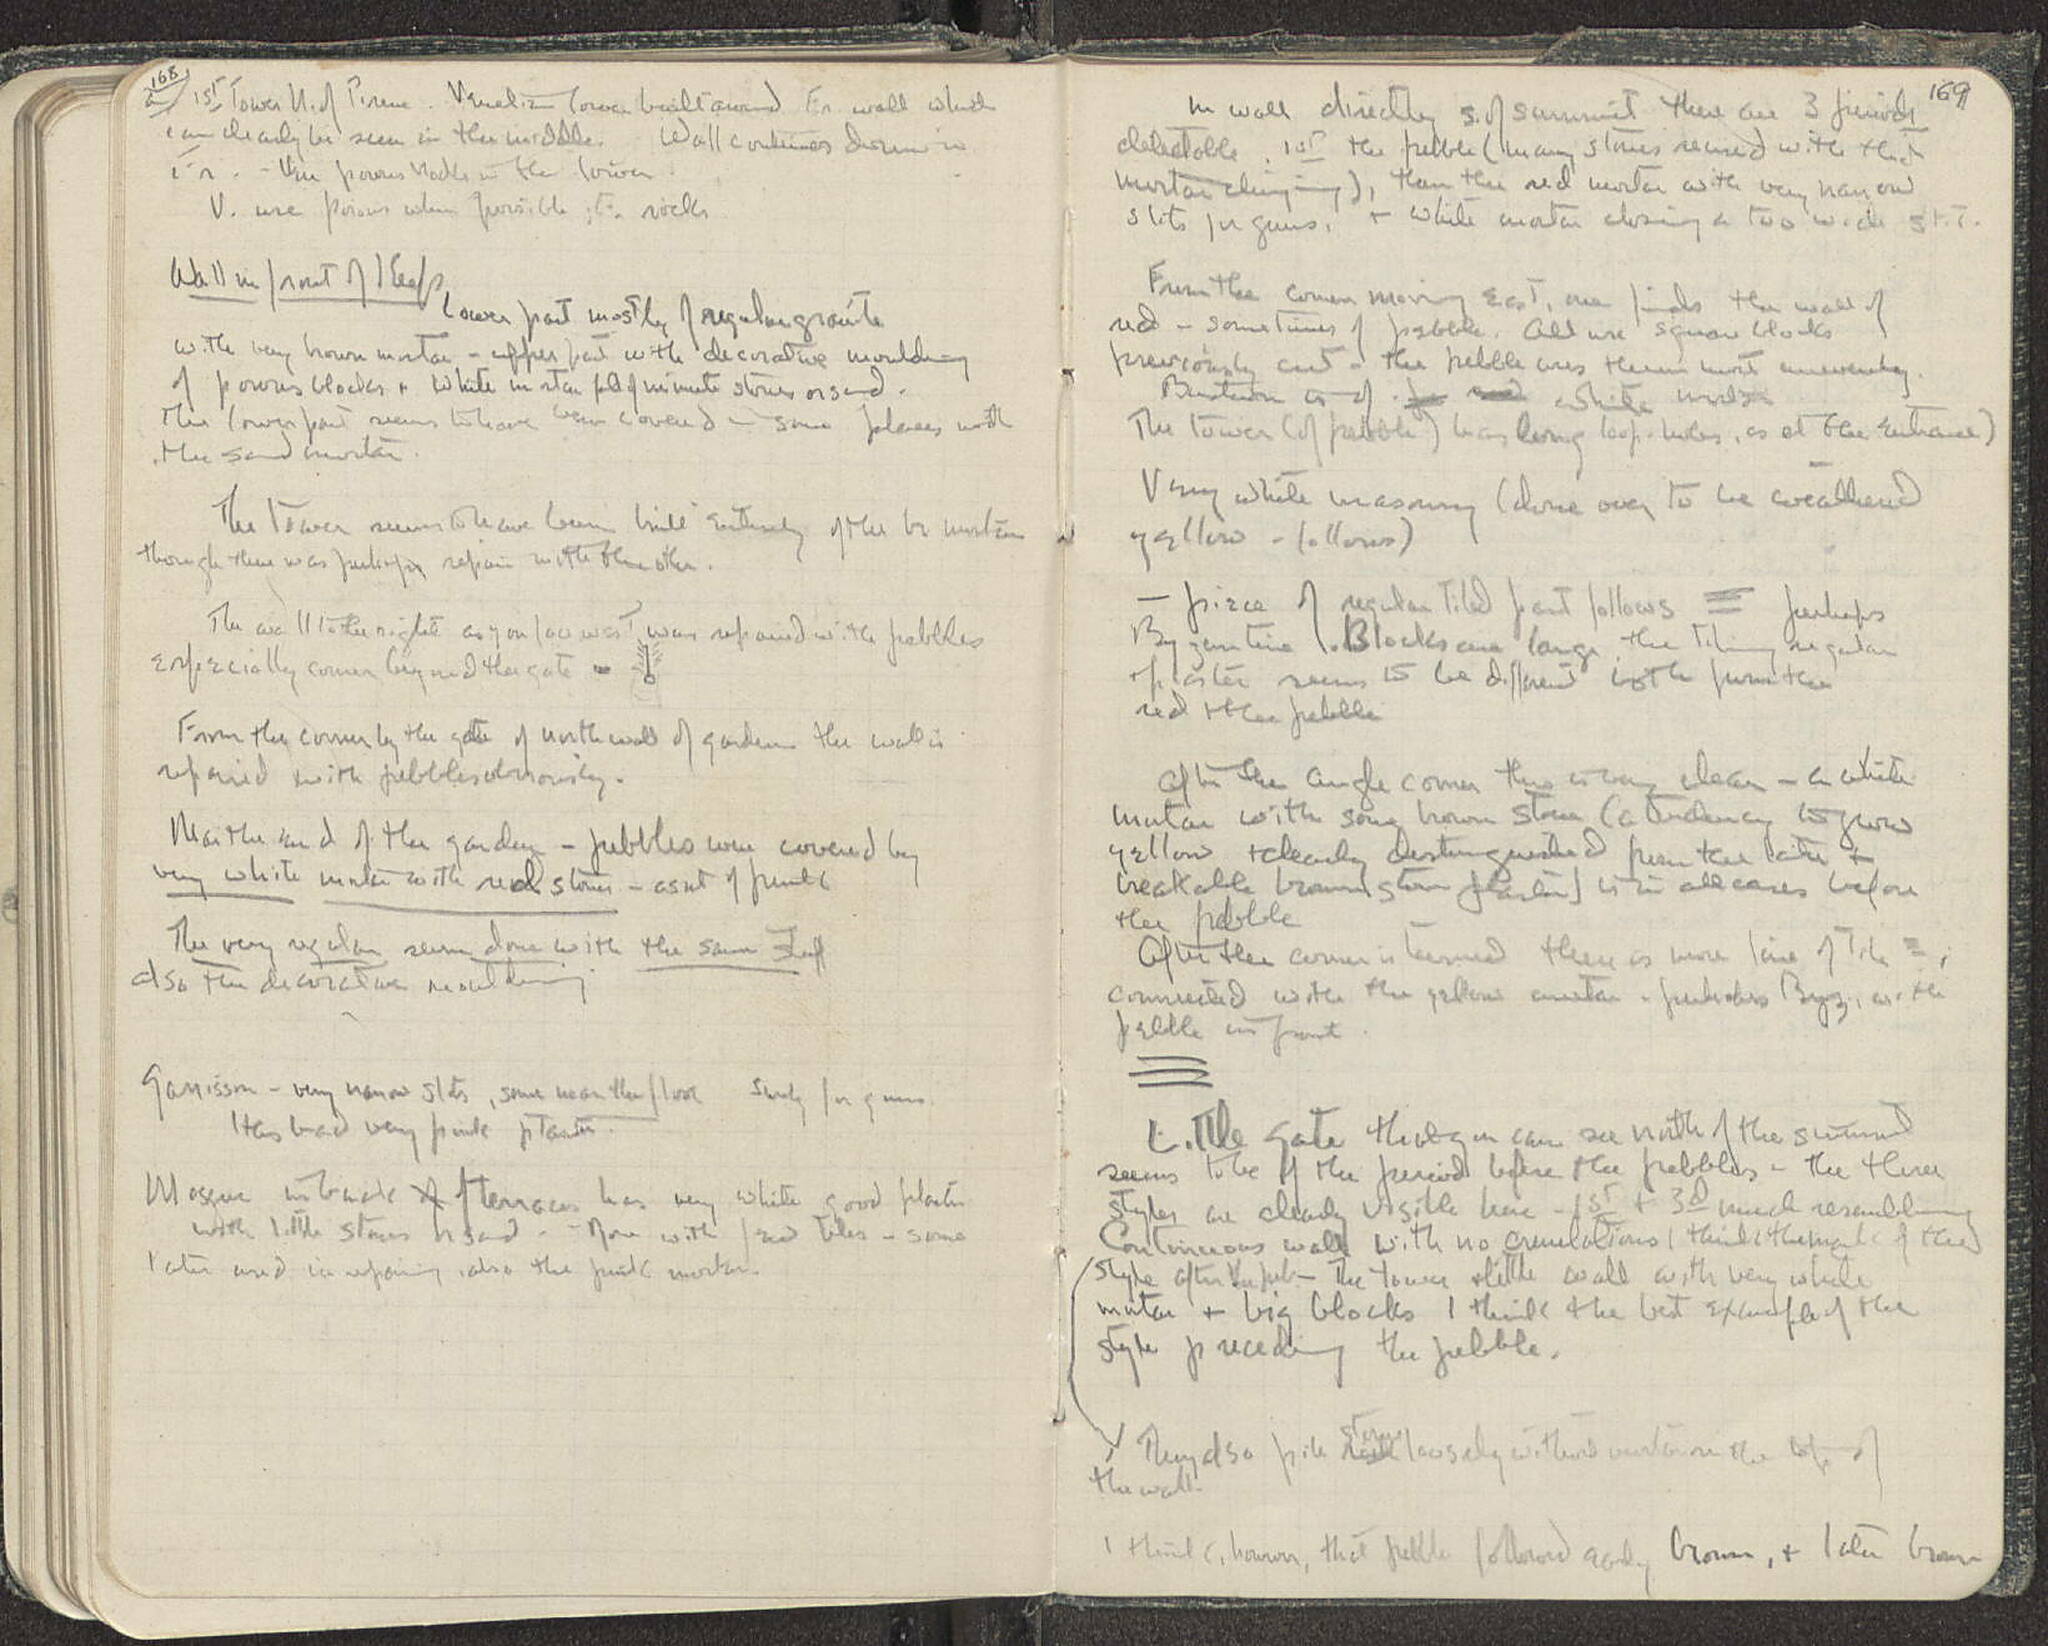 168
a
1st Tower N. of Pirene. Venetian tower built around Fr. wall which
can clearly be seen in the middle. Wall continues down in
Fr. - Ven porous rocks in the tower
V. use porous when possible; Fr. rocks
Wall in front of Keep
Lower part mostly of regular granite
with very brown mortar - upper part with decorative moulding
of porous blocks + white mortar full of minute stones or sand.
The lower part seems to have been covered in some places with
the sand mortar.
The tower seems to have been built entirely of the br mortar
though there was perhaps repair with the other.
The wall to the right as you face west was repaired with pebbles
especially corner beyond the gate -
From the corner by the gate of north wall of gardens the wall is
repaired with pebbles obviously.
Near the end of the garden - pebbles were covered by
very white mortar with red stones - as sort of pink
The very regular seem done with the same stuff
also the decorative moulding
Garrison - very narrow slots, some near the floor surely for guns.
Has had very pink plaster.
Mosque in back of terraces has very white good plaster
with little stones or sand. - Done with red tiles - some
later used in repairing also the pink mortar.
169
In wall directly s. of summit there are 3 periods
detectable. 1st the pebble (many stones reused with that
mortar clinging), then the red mortar with very narrow
slots for guns, + white mortar closing a too wide slot.
From the corner moving East, one finds the wall of
red - sometimes of pebble. All use square blocks
previously cut - the pebble uses them most unevenly.
Bastion is of white mortar
The tower (of pebble) has long loop-holes, as at the entrance)
Very white masonry (done over to be weathered
yellow - follows)
- piece of regular tiled part follows = perhaps
Byzantine. Blocks are large, the tiling regular
plaster seems to be different both from the
red + the pebble
After the angle corner this is very clear - a white
mortar with some brown stone (a tendency to grow
yellow + clearly distinguished from the later +
breakable brown stone plaster) is in all cases before
the pebble
After the corner is turned there is more line of tile =,
connected with the yellow mortar - perhaps Byz., with
pebble in front.
Little gate that you can see north of the summit
seems to be of the period before the pebbles - the three
styles are clearly visible here - 1st + 3d much resembling
Continuous wall with no crenelations I think the mark of the
style after the peb. - The tower + little wall with very white
mortar + big blocks I think the best example of the
style preceding the pebble.
They also pile stones loosely without mortar on the top of
the wall.
I think, however, that pebble followed early brown, + later brown